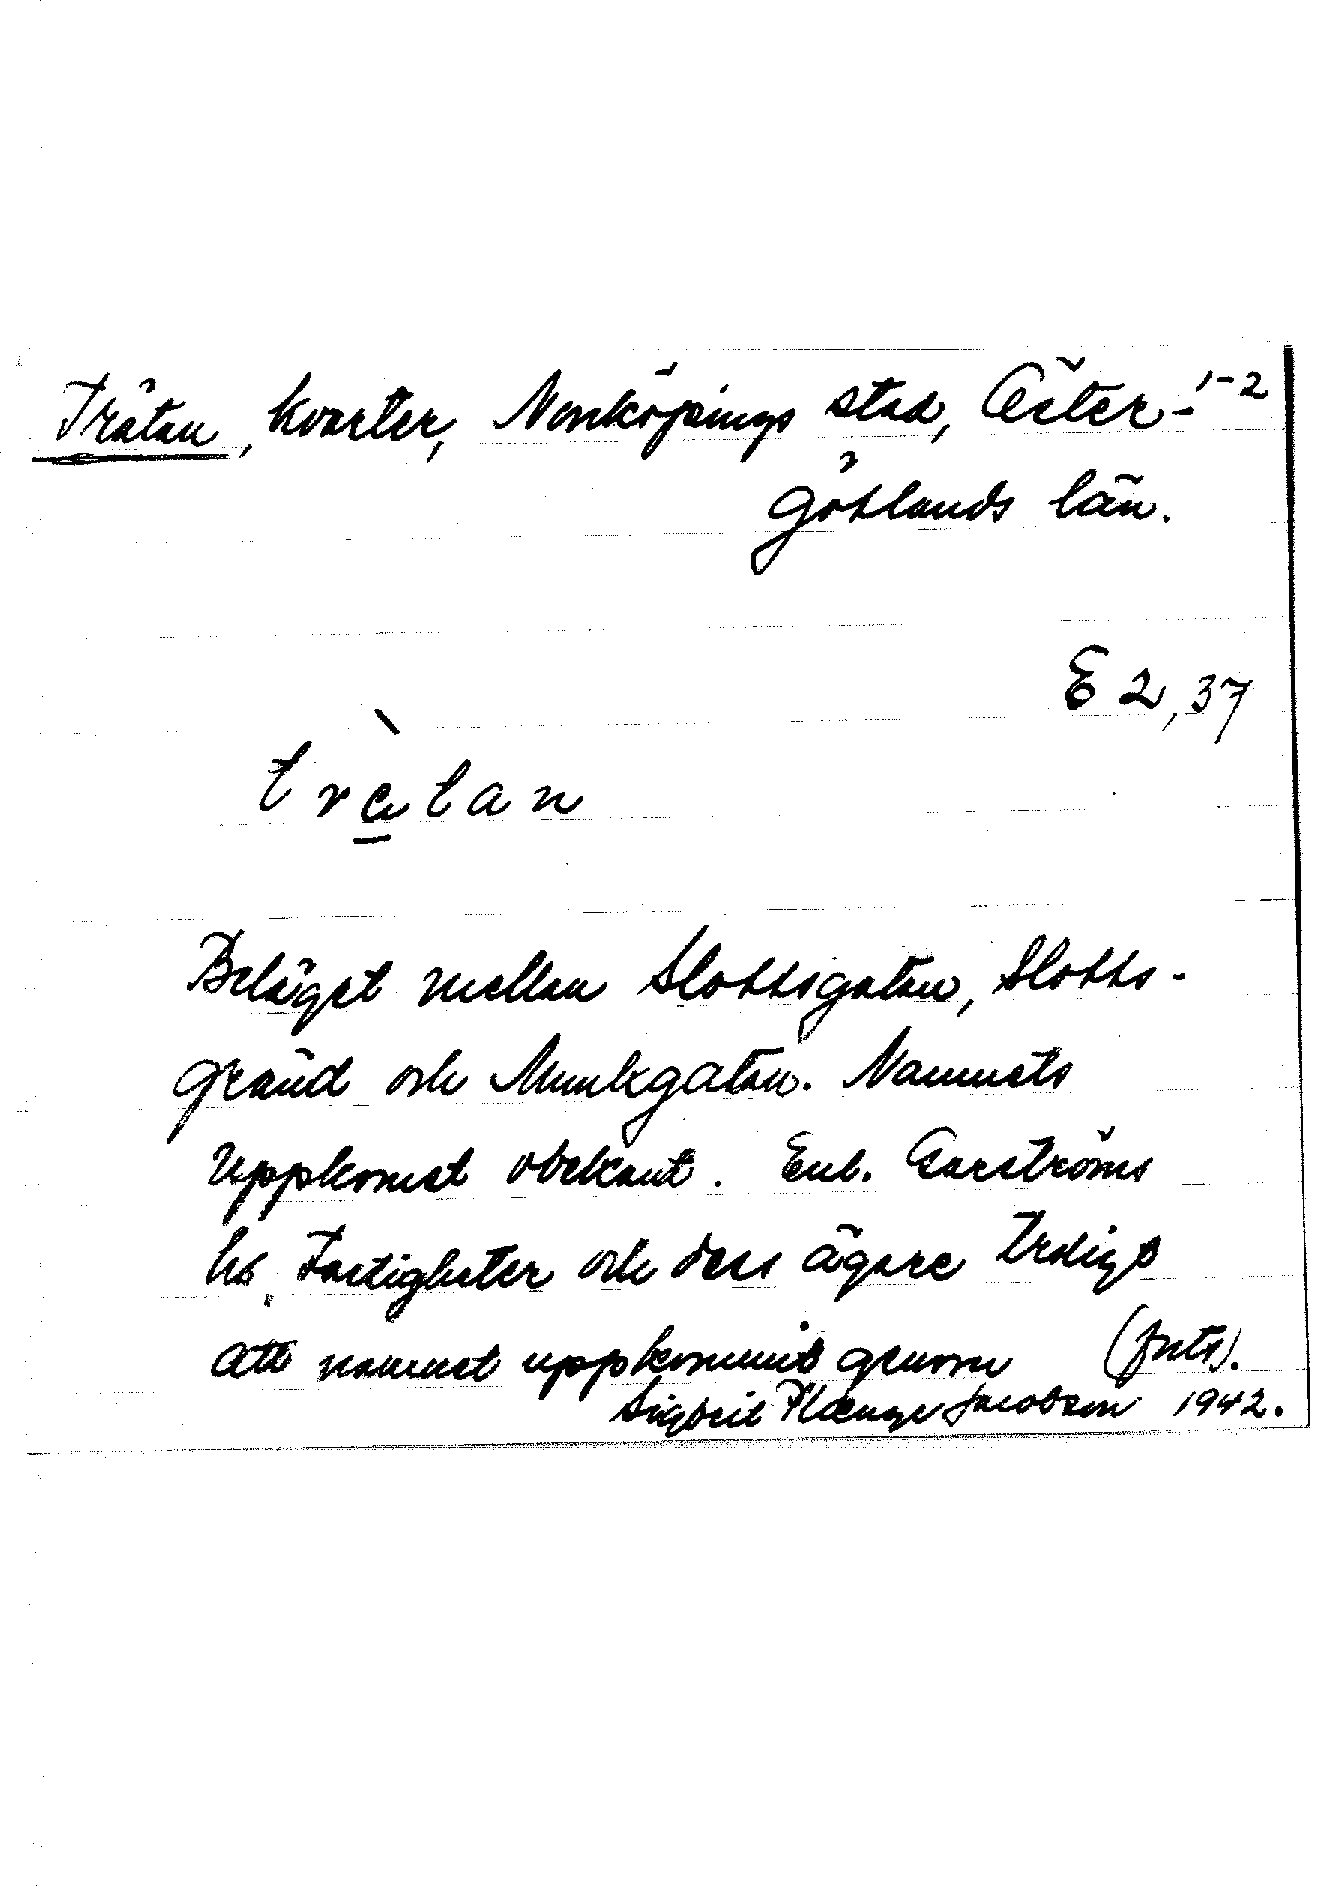 Trätan, kvarter, Norrköpings stad, Öster- 1-2
götlands län.
E 2,37
trætan
Beläget mellan Slottsgatan, Slotts-
gränd och Munkgatan. Namnets
uppkomst obekant. Enl. Carströms
hs. Fastigheter och dess ägare troligt
att namnet uppkommit genom (forts).
Sigbrit Plænge Jacobson 1942.